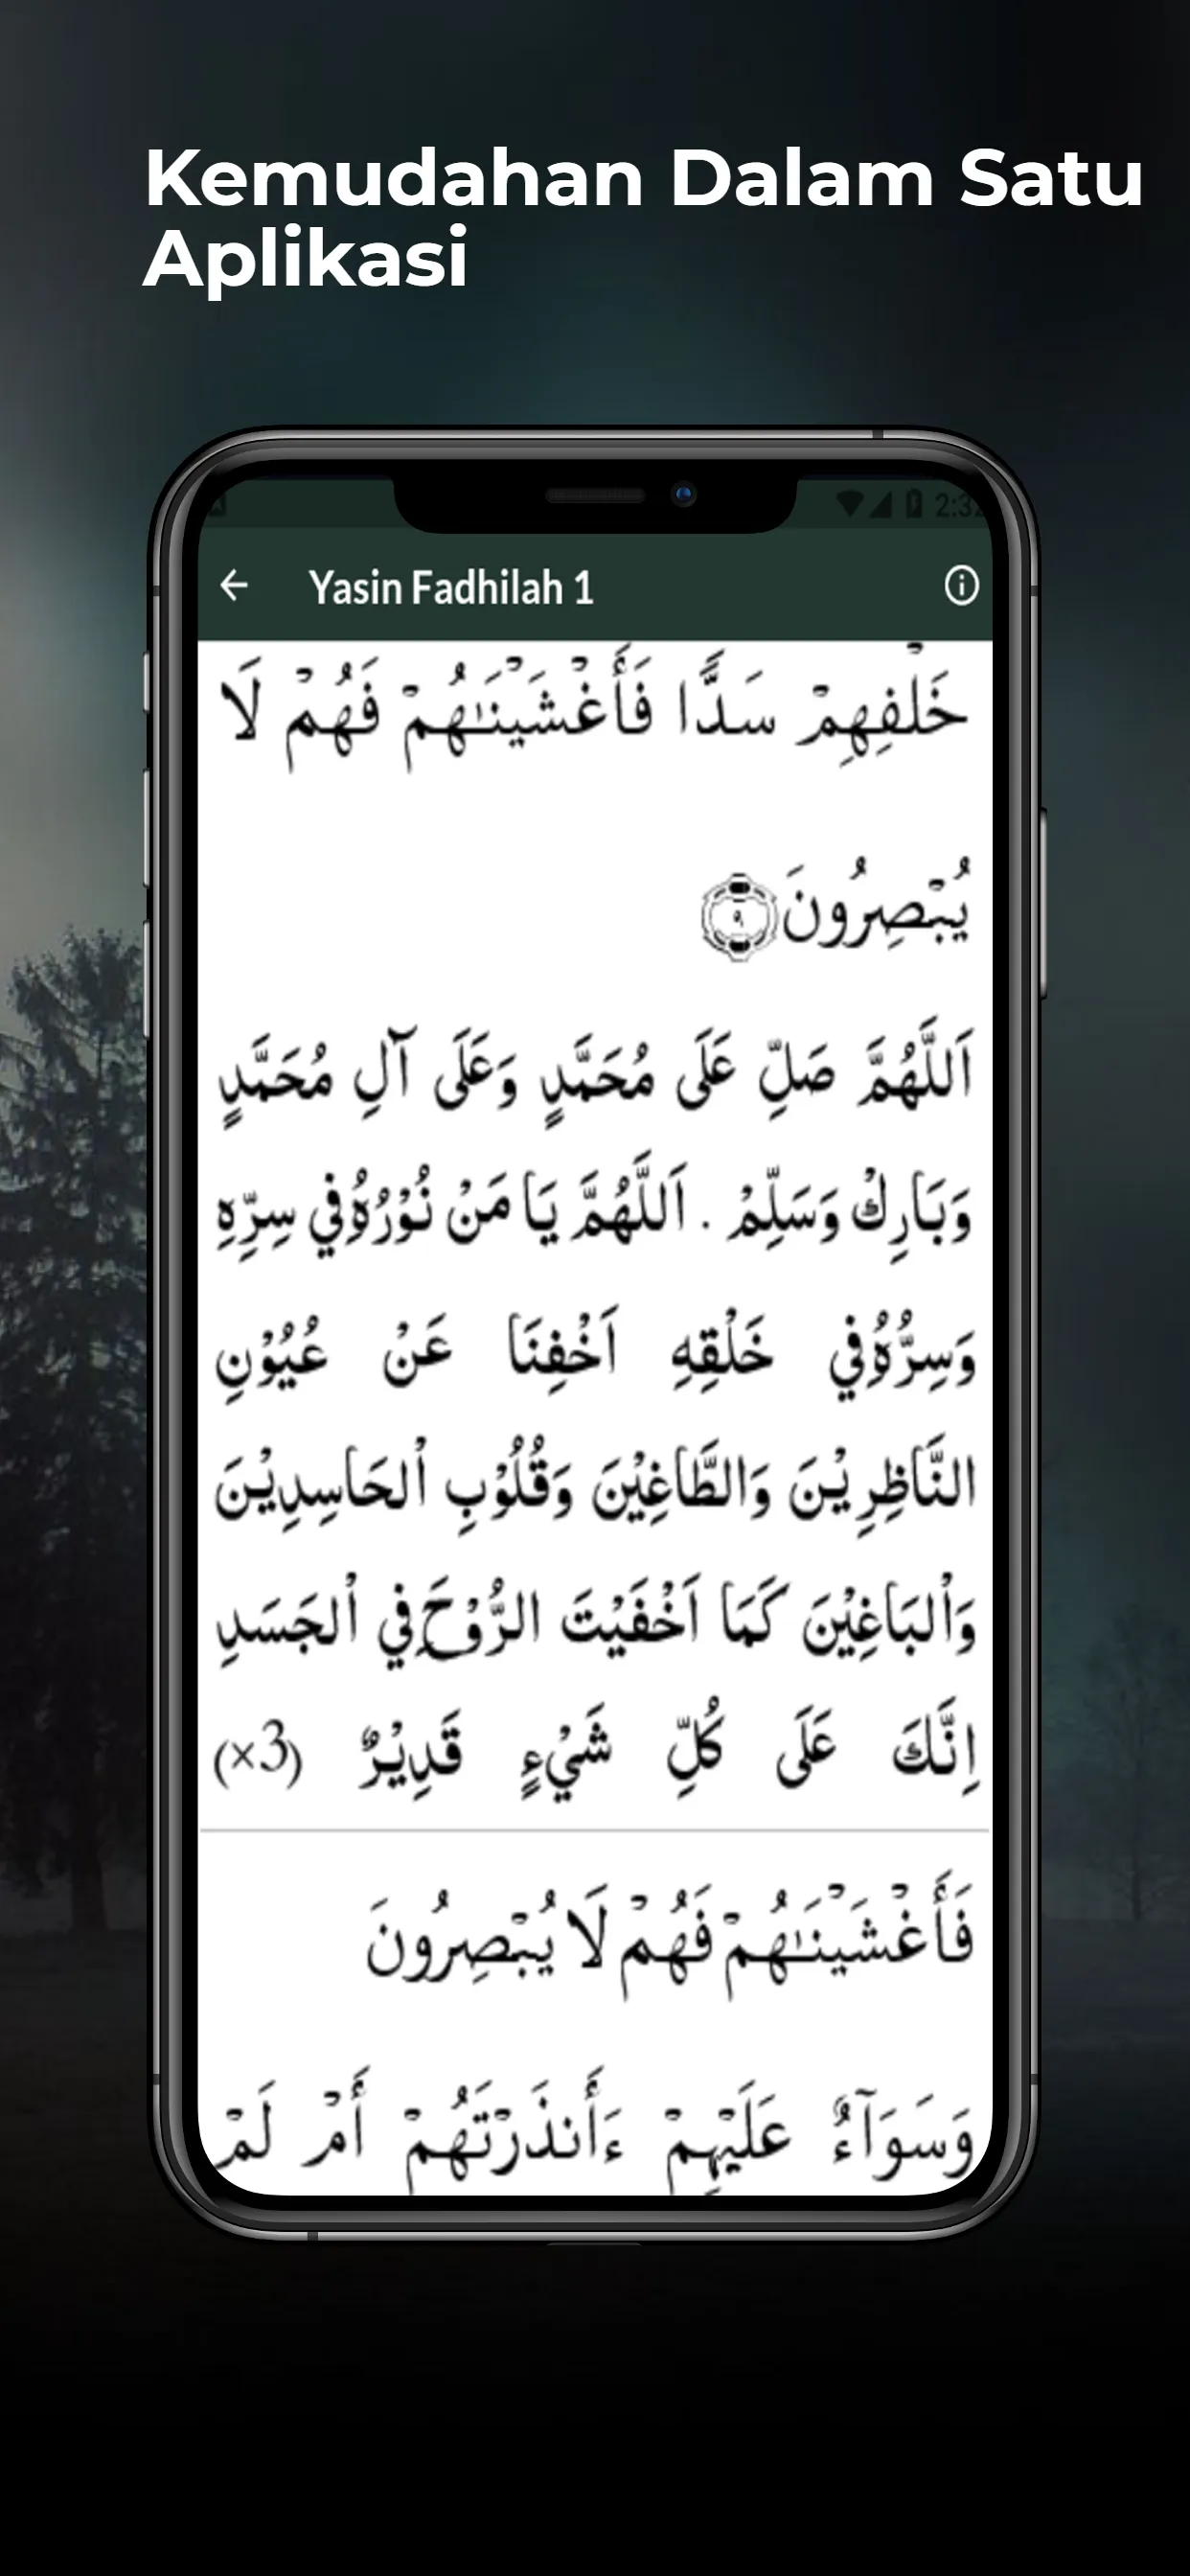 Kemudahan Dalam Satu
Aplikasi
2:32
Yasin Fadhilah 1
خَلْفِهِمْ سَدًّا فَأَغْشَيْنَٰهُمْ فَهُمْ لَا
يُبْصِرُونَ ٩
اَللَّهُمَّ صَلِّ عَلَى مُحَمَّدٍ وَعَلَى آلِ مُحَمَّدٍ
وَبَارِكْ وَسَلِّمْ . اَللَّهُمَّ يَا مَنْ نُوْرُهُ فِي سِرِّهِ
وَسِرُّهُ فِي خَلْقِهِ اَخْفِنَا عَنْ عُيُوْنِ
النَّاظِرِيْنَ وَالطَّاغِيْنَ وَقُلُوْبِ اْلحَاسِدِيْنَ
وَاْلبَاغِيْنَ كَمَا اَخْفَيْتَ الرُّوْحَ فِي اْلجَسَدِ
اِنَّكَ عَلَى كُلِّ شَيْءٍ قَدِيْرٌ (×3)
فَأَغْشَيْنَٰهُمْ فَهُمْ لَا يُبْصِرُونَ
وَسَوَآءٌ عَلَيْهِمْ ءَأَنذَرْتَهُمْ أَمْ لَمْ